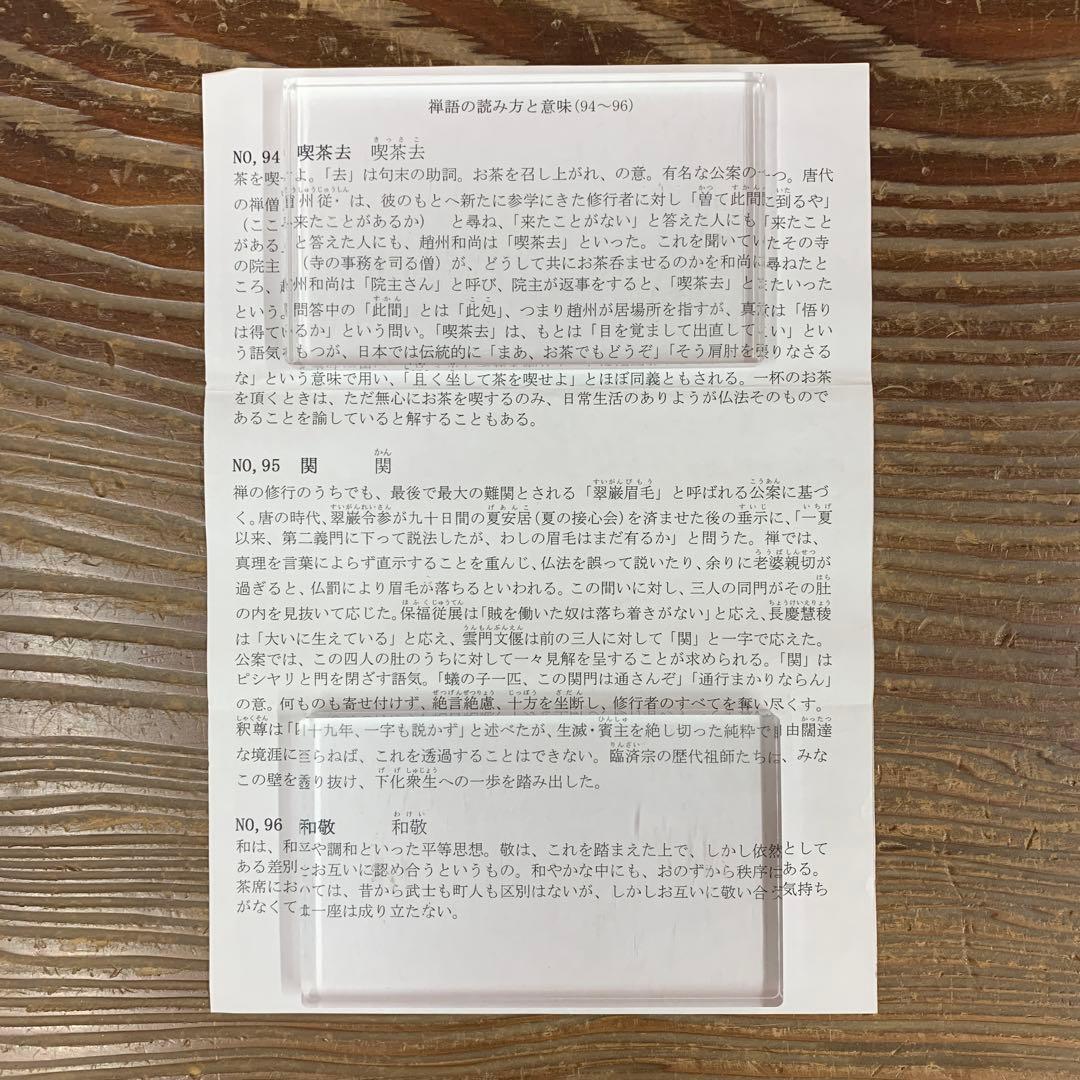 禅語の読み方と意味(94～96)
きっさこ
NO,94 喫茶去 喫茶去
茶を喫せよ。「去」は句末の助詞。お茶を召し上がれ、の意。有名な公案の一つ。唐代
じょうしゅうじゅうしん かつ すかん いた
の禅僧趙州従・は、彼のもとへ新たに参学にきた修行者に対し「曽て此間に到るや」
（ここへ来たことがあるか） と尋ね、「来たことがない」と答えた人にも「来たこと
がある」と答えた人にも、趙州和尚は「喫茶去」といった。これを聞いていたその寺
の院主（寺の事務を司る僧）が、どうして共にお茶呑ませるのかを和尚に尋ねたと
ころ、趙州和尚は「院主さん」と呼び、院主が返事をすると、「喫茶去」とまたいった
すかん ここ
という。問答中の「此間」とは「此処」、つまり趙州が居場所を指すが、真意は「悟り
は得ているか」という問い。「喫茶去」は、もとは「目を覚まして出直してこい」とい
う語気をもつが、日本では伝統的に「まあ、お茶でもどうぞ」「そう肩肘を張りなさる
な」という意味で用い、「且く坐して茶を喫せよ」とほぼ同義ともされる。一杯のお茶
を頂くときは、ただ無心にお茶を喫するのみ、日常生活のありようが仏法そのもので
あることを諭していると解することもある。
かん
NO,95 関 関
すいがんびもう こうあん
禅の修行のうちでも、最後で最大の難関とされる「翠巌眉毛」と呼ばれる公案に基づ
すいがんれいさん げあんこ すいじ いちげ
く。唐の時代、翠巌令参が九十日間の夏安居(夏の接心会)を済ませた後の垂示に、「一夏
以来、第二義門に下って説法したが、わしの眉毛はまだ有るか」と問うた。禅では、
ろうばしんせつ
真理を言葉によらず直示することを重んじ、仏法を誤って説いたり、余りに老婆親切が
はら
過ぎると、仏罰により眉毛が落ちるといわれる。この間いに対し、三人の同門がその肚
ほふくじゅうてん ちょうけいえりょう
の内を見抜いて応じた。保福従展は「賊を働いた奴は落ち着きがない」と応え、長慶慧稜
うんもんぶんえん
は「大いに生えている」と応え、雲門文偃は前の三人に対して「関」と一字で応えた。
公案では、この四人の肚のうちに対して一々見解を呈することが求められる。「関」は
ピシヤリと門を閉ざす語気。「蟻の子一匹、この関門は通さんぞ」「通行まかりならん」
ぜつげんぜつりょう じっぽう ざだん
の意。何ものも寄せ付けず、絶言絶慮、十方を坐断し、修行者のすべてを奪い尽くす。
しゃくそん ひんしゅ かったつ
釈尊は「四十九年、一字も説かず」と述べたが、生滅・賓主を絶し切った純粋で自由闊達
りんざい
な境涯に至らねば、これを透過することはできない。臨済宗の歴代祖師たちは、みな
げげしゅじょう
この壁を透り抜け、下化衆生への一歩を踏み出した。
わけい
NO,96 和敬 和敬
和は、和平や調和といった平等思想。敬は、これを踏まえた上で、しかし依然として
ある差別をお互いに認め合うというもの。和やかな中にも、おのずから秩序はある。
茶席においては、昔から武士も町人も区別はないが、しかしお互いに敬い合う気持ち
がなくては一座は成り立たない。